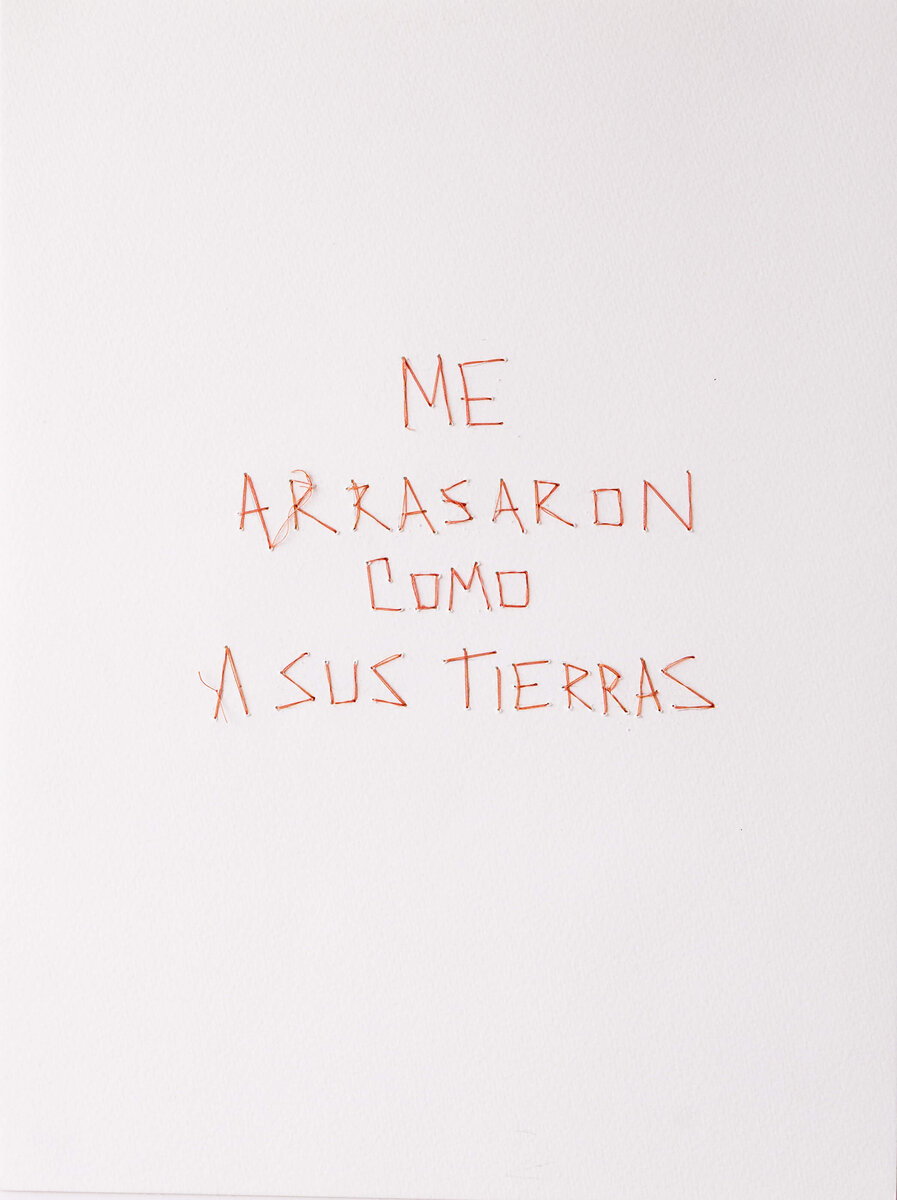 ME
ARRASARON
COMO
A SUS TIERRAS